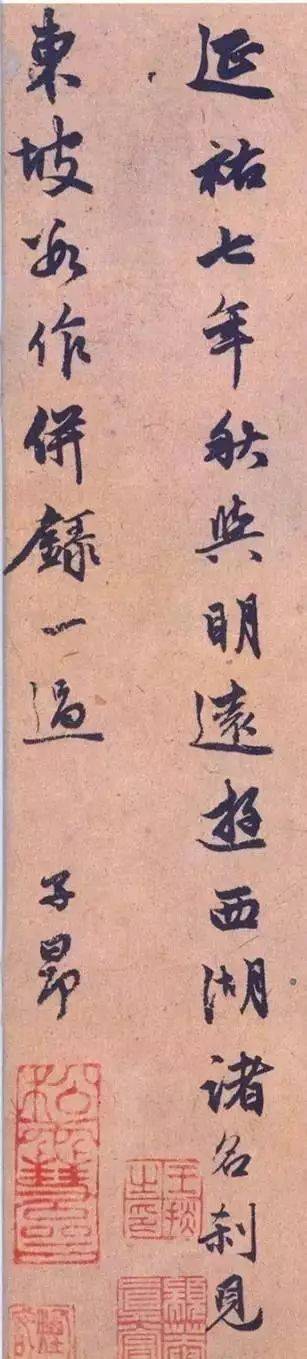 延祐七年秋與明遠遊西湖諸名刹見
東坡此作併錄一過
子昂
松雪齋